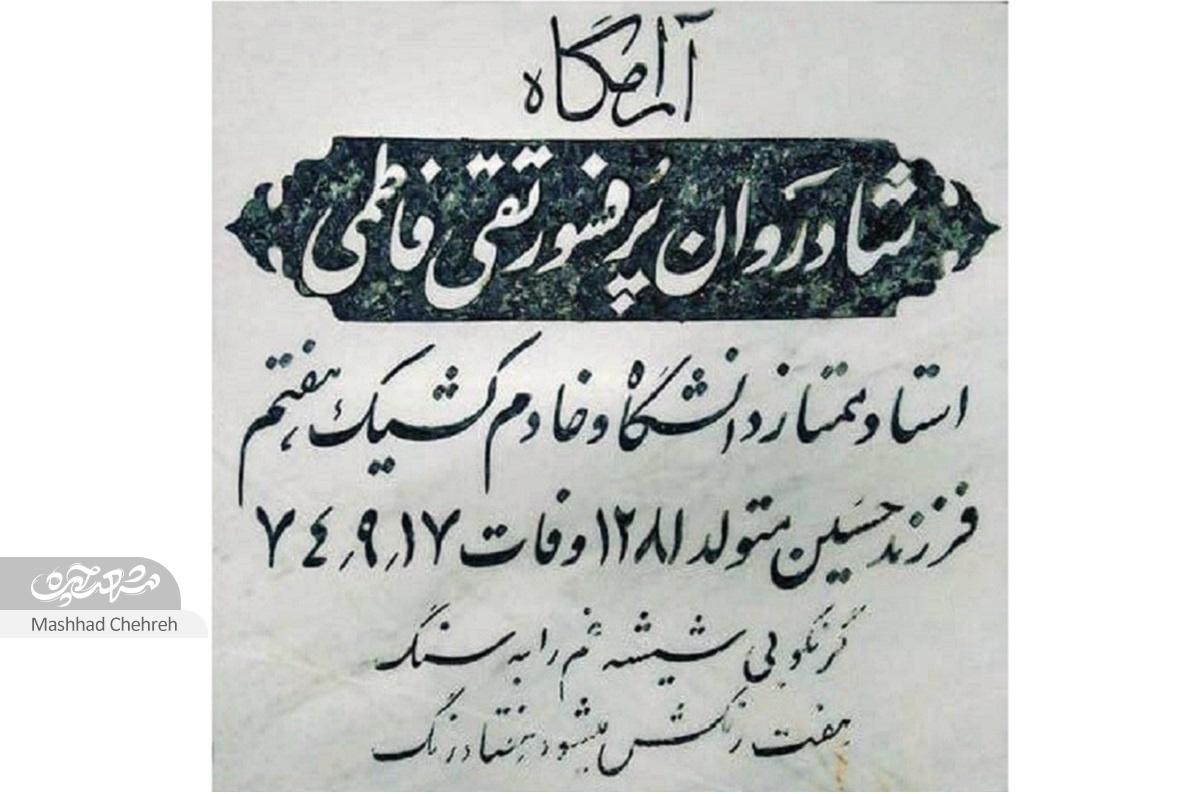 آرامگاه
شادروان پرفسور تقی فاطمی
استاد ممتاز دانشگاه و خادم کشیک هفتم
فرزند حسین متولد ۱۲۸۱ وفات ۱۷٫۹٫۷٤
گر نکوبی شیشه غم را به سنگ
هفت رنگش میشود هفتاد رنگ
مشهد چهره
Mashhad Chehreh